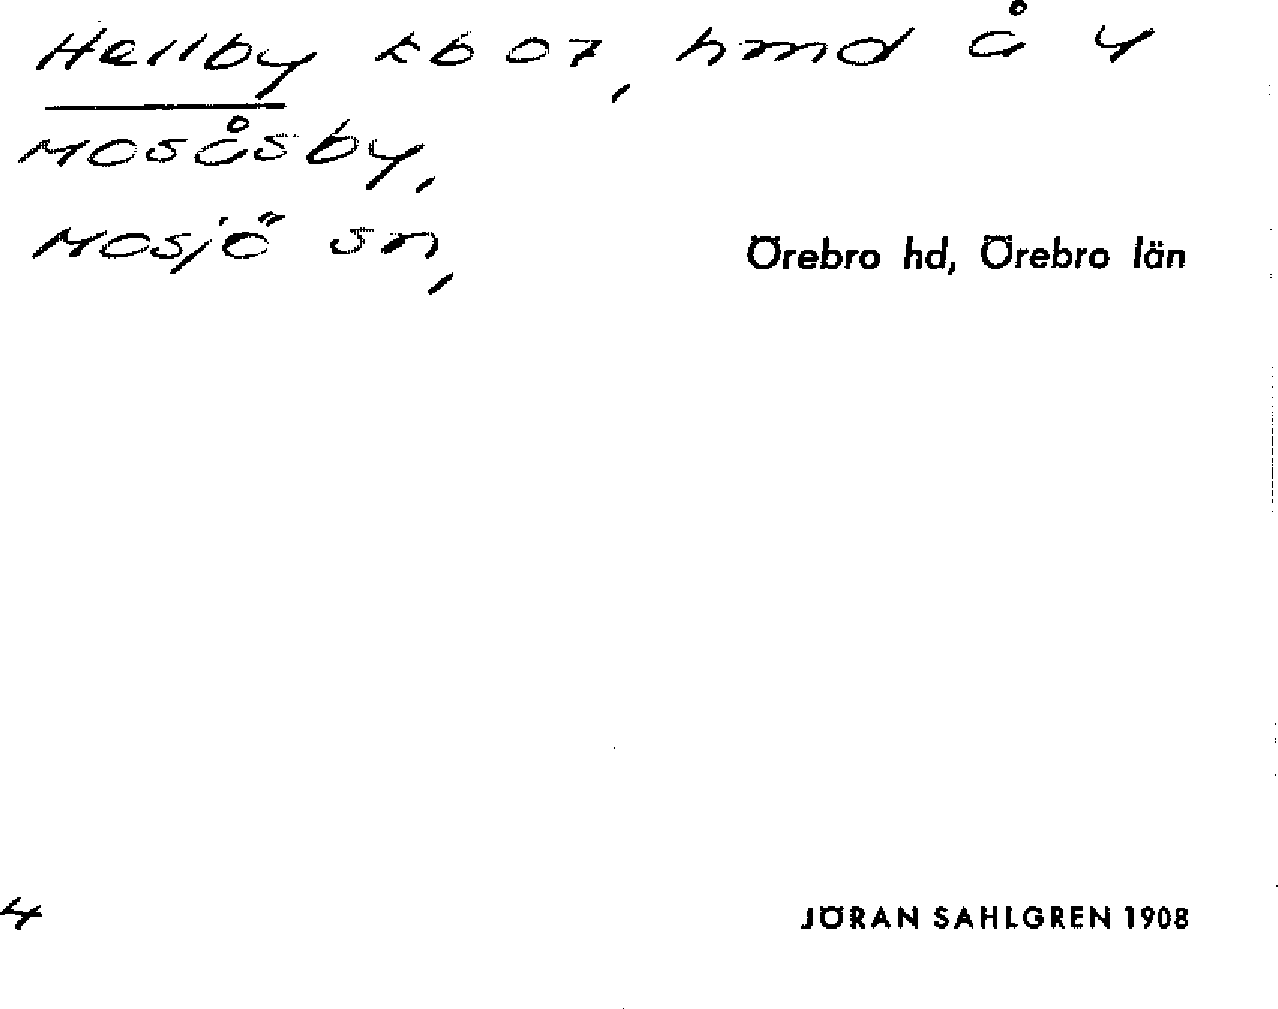 Hellby Lb 07, hmd å 4
Mosåsby,
Mosjö sn,
Örebro hd, Örebro län
4
JÖRAN SAHLGREN 1908